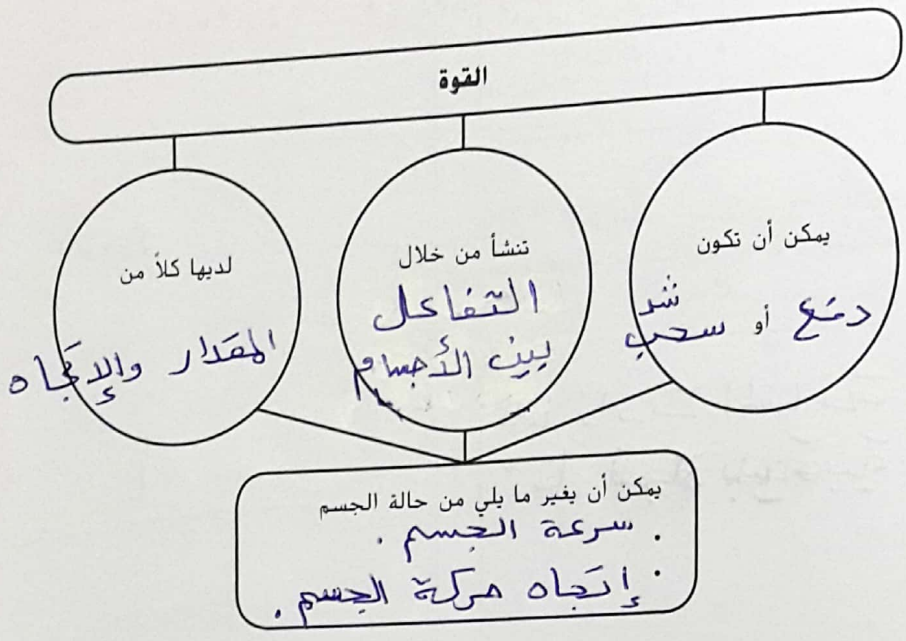 القوة
يمكن أن تكون
شد
دفع أو سحب
تنشأ من خلال
التفاعل
بين الأجسام
لديها كلاً من
المقدار والإتجاه
يمكن أن يغير ما يلي من حالة الجسم
. سرعة الجسم .
. إتجاه حركة الجسم .